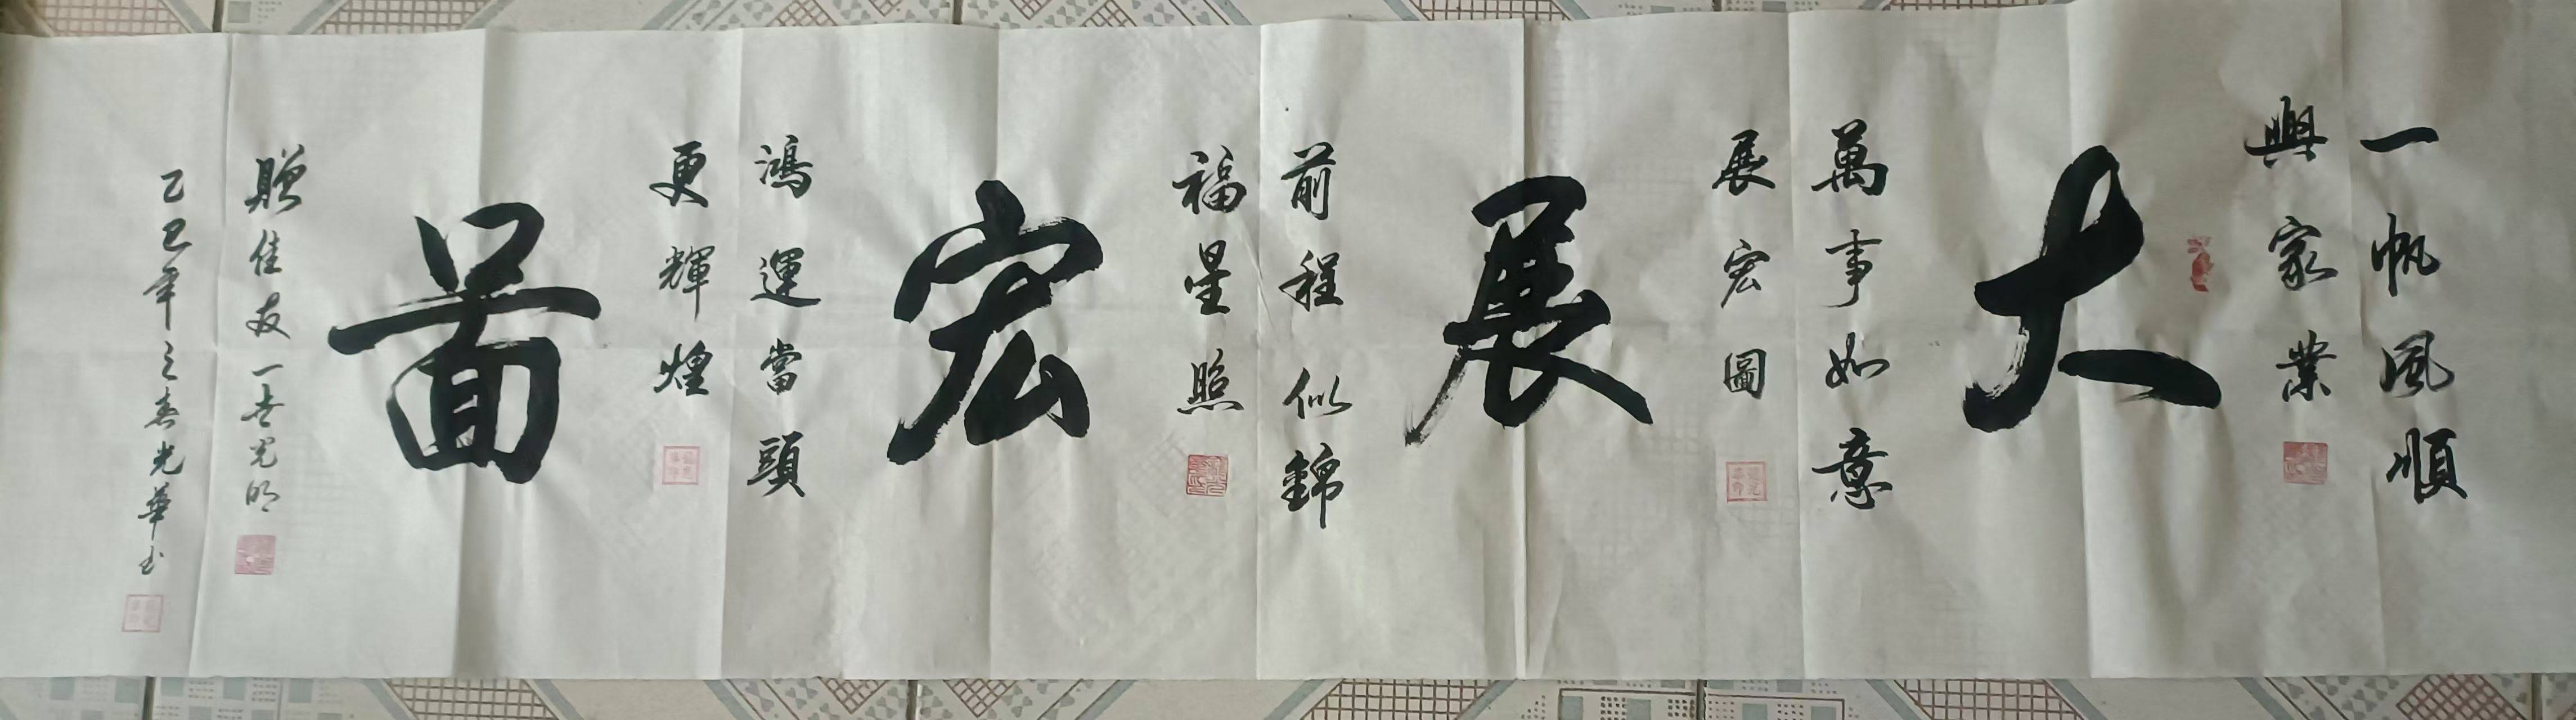 一帆風順
興家業
大
萬事如意
展宏圖
展
前程似錦
福星照
宏
鴻運當頭
更輝煌
圖
贈佳友一世光明
乙巳年之春光華书